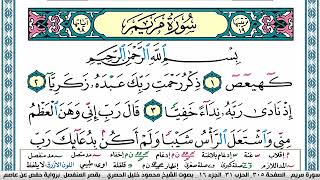 سُورَةُ مَرْيَمَ
بِسْمِ ٱللَّهِ ٱلرَّحْمَٰنِ ٱلرَّحِيمِ
كٓهيعٓصٓ ١ ذِكْرُ رَحْمَتِ رَبِّكَ عَبْدَهُۥ زَكَرِيَّآ ٢
إِذْ نَادَىٰ رَبَّهُۥ نِدَآءً خَفِيًّا ٣ قَالَ رَبِّ إِنِّى وَهَنَ ٱلْعَظْمُ
مِنِّى وَٱشْتَعَلَ ٱلرَّأْسُ شَيْبًا وَلَمْ أَكُنۢ بِدُعَآئِكَ رَبِّ
سورة مريم الصفحة ٣٠٥ الحزب ٣١ الجزء ١٦ بصوت الشيخ محمود خليل الحصري بقصر المنفصل برواية حفص عن عاصم